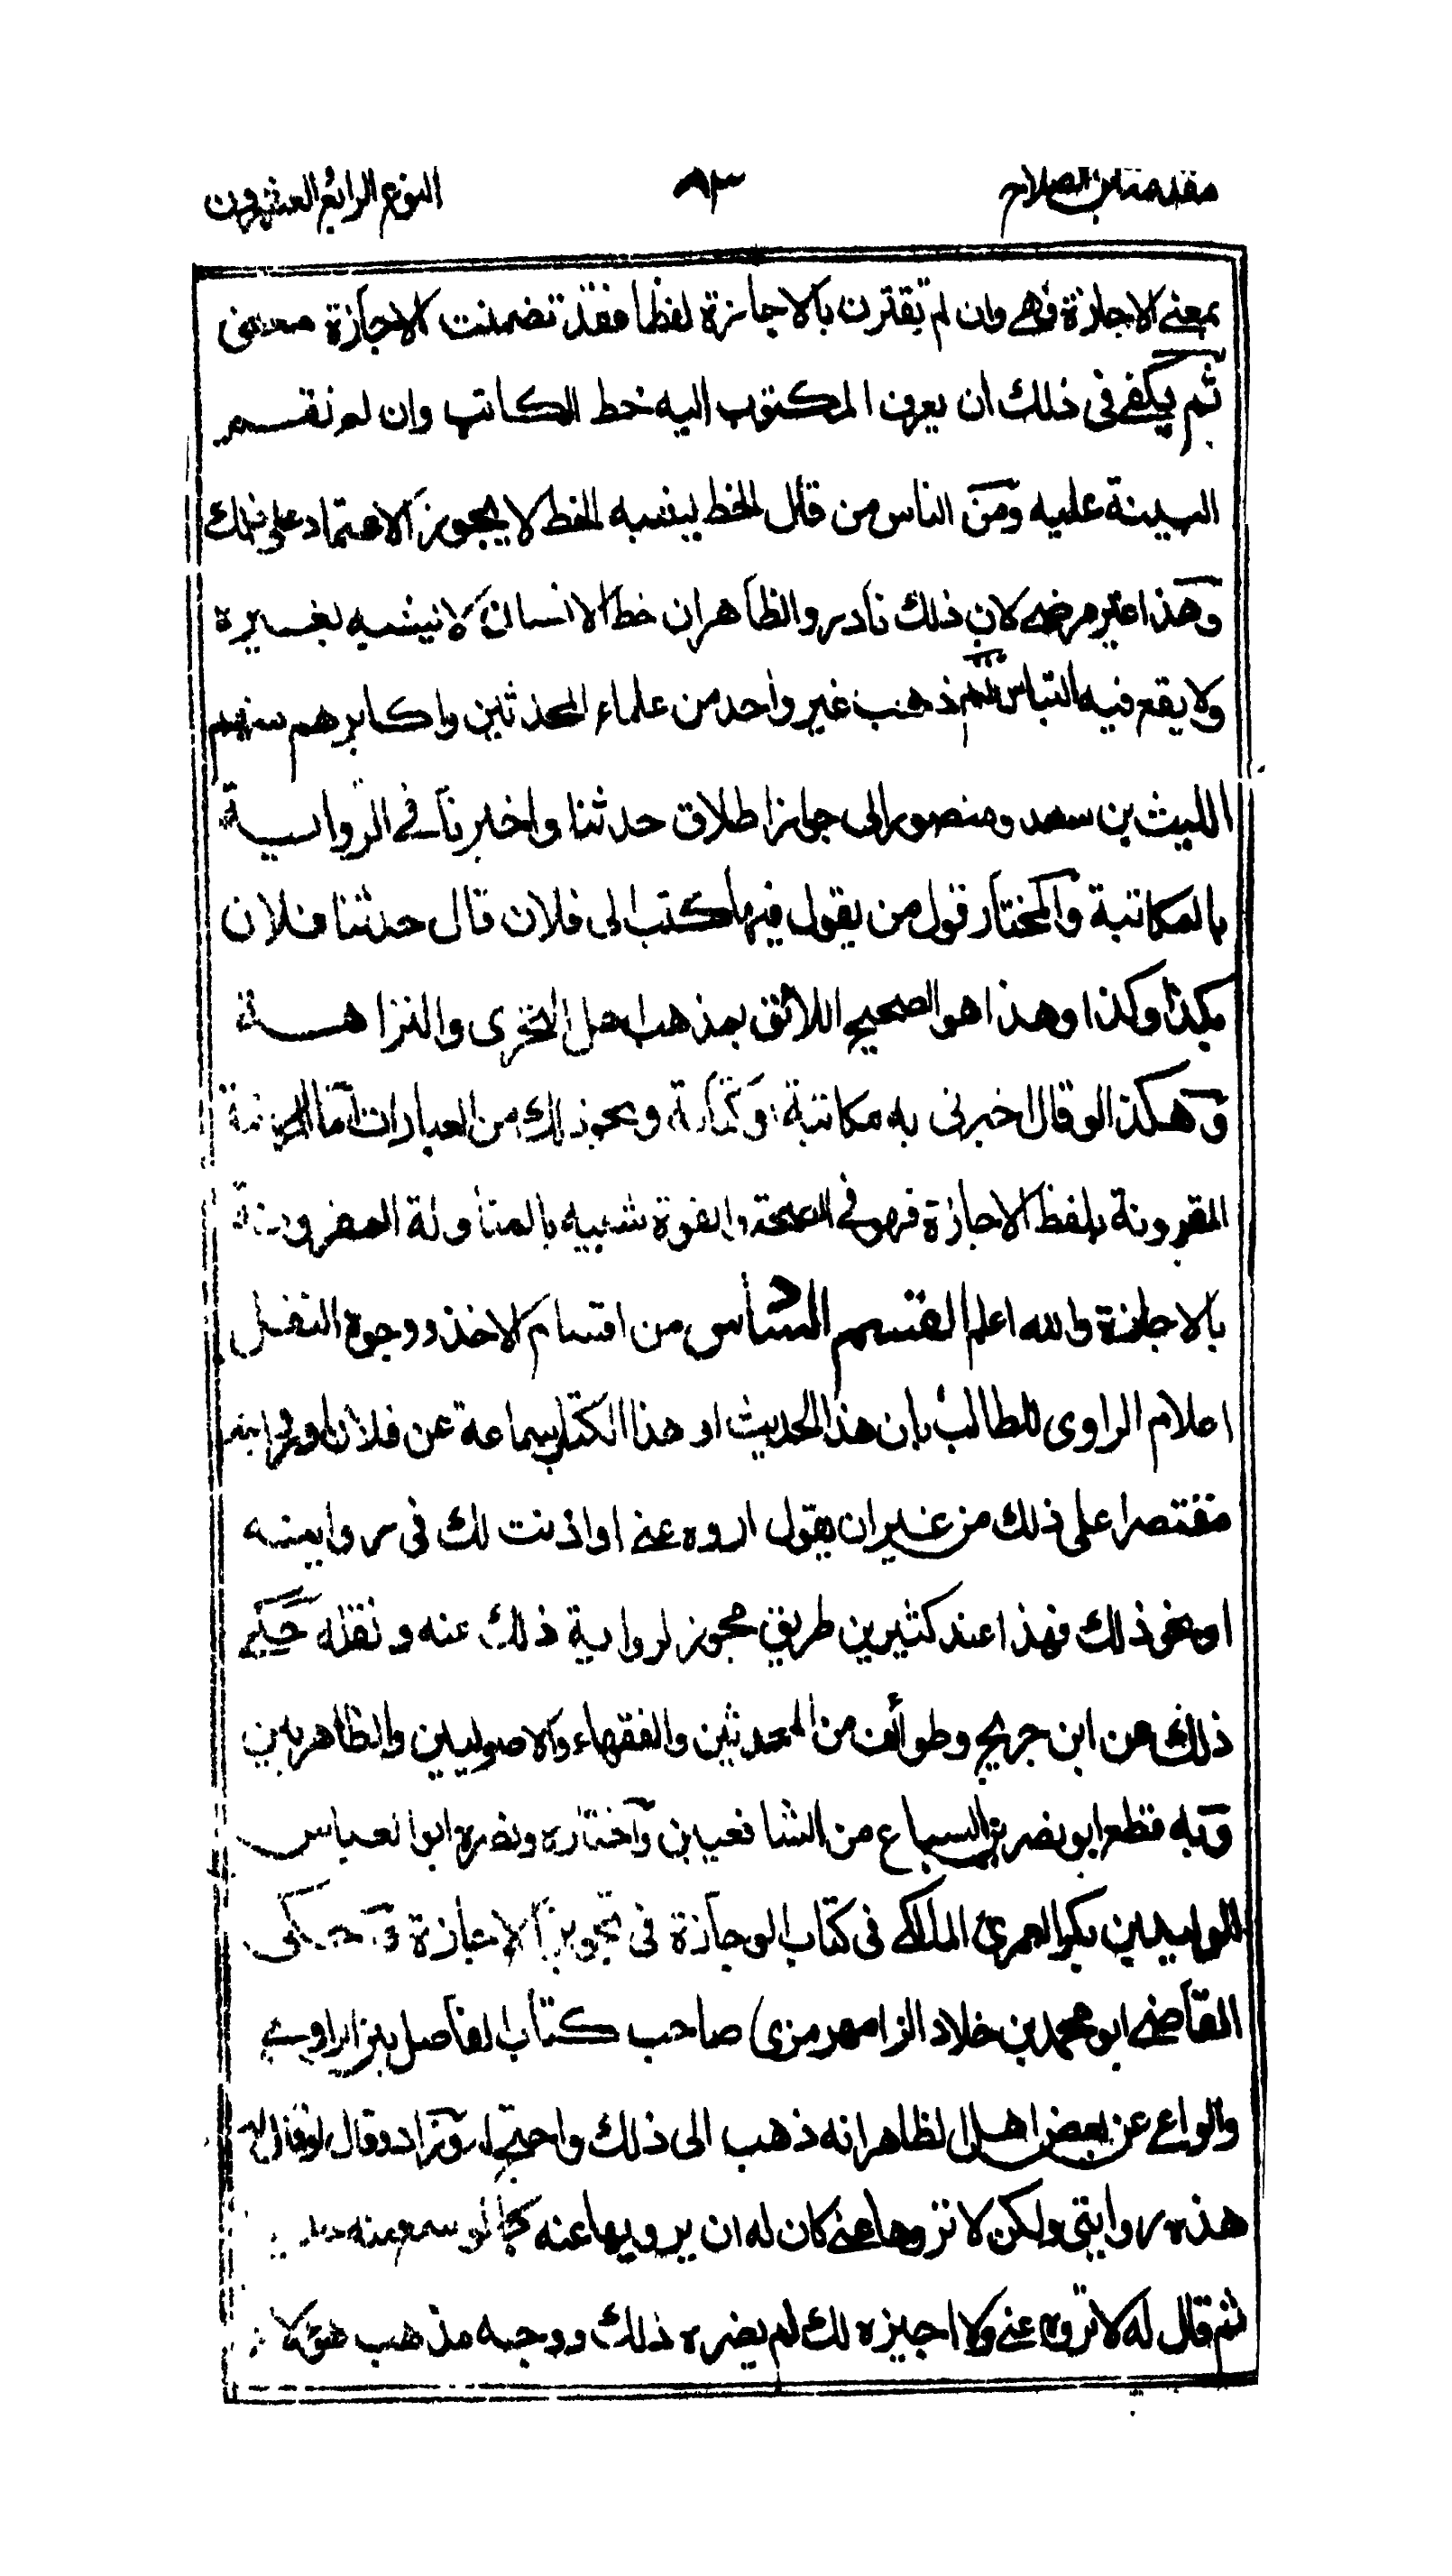 مقدمة ابن الصلاح ٨٣ النوع الرابع العشرون
بمعنى الاجازة فهى وان لم تقترن بالاجازة لفظا فقد تضمنت الاجازة معنى
ثم يكفى فى ذلك ان يعرف المكتوب اليه خط الكاتب وان لم تقم
البينة عليه ومن الناس من قال الخط يشبه الخط لا يجوز الاعتماد على ذلك
وهذا غير مرضى لان ذلك نادر والظاهر ان خط الانسان لا يشبه بغيره
ولا يقع فيه التباس ثم ذهب غير واحد من علماء المحدثين واكابرهم منهم
الليث بن سعد ومنصور الى جواز اطلاق حدثنا واخبرنا فى الرواية
بالمكاتبة والمختار قول من يقول فيها كتب الى فلان قال حدثنا فلان
بكذا وكذا وهذا هو الصحيح اللائق بمذهب اهل التحرى والنزاهة
وهكذا لو قال اخبرنى به مكاتبة او كتابة ونحو ذلك من العبارات اما المكاتبة
المقرونة بلفظ الاجازة فهو فى الصحة والقوة شبيه بالمناولة المقرونة
بالاجازة والله اعلم القسم السادس من اقسام الاخذ ووجوه النقل
اعلام الراوى للطالب بان هذا الحديث او هذا الكتاب سماعه عن فلان او روايته
مقتصرا على ذلك من غير ان يقول اروه عنى او اذنت لك فى روايته
او نحو ذلك فهذا عند كثيرين طريق مجوز لرواية ذلك عنه ونقله حكى
ذلك عن ابن جريج وطوائف من المحدثين والفقهاء والاصوليين والظاهريين
وبه قطع ابو نصر بن السباع من الشافعيين واختاره ونصره ابو العباس
الوليد بن بكر العمرى المالكى فى كتاب الوجازة فى تجويز الاجازة وحكى
القاضى ابو محمد بن خلاد الرامهرمزى) صاحب كتاب الفاصل بين الراوى
والواعى عن بعض اهل الظاهر انه ذهب الى ذلك واحتج له وزاد وقال لو قال له
هذه روايتى ولكن لا تروها عنى كان له ان يرويها عنه كما لو سمع منه
ثم قال له لا تروه عنى ولا اجيزه لك لم يضره ذلك ووجه مذهب هؤلا